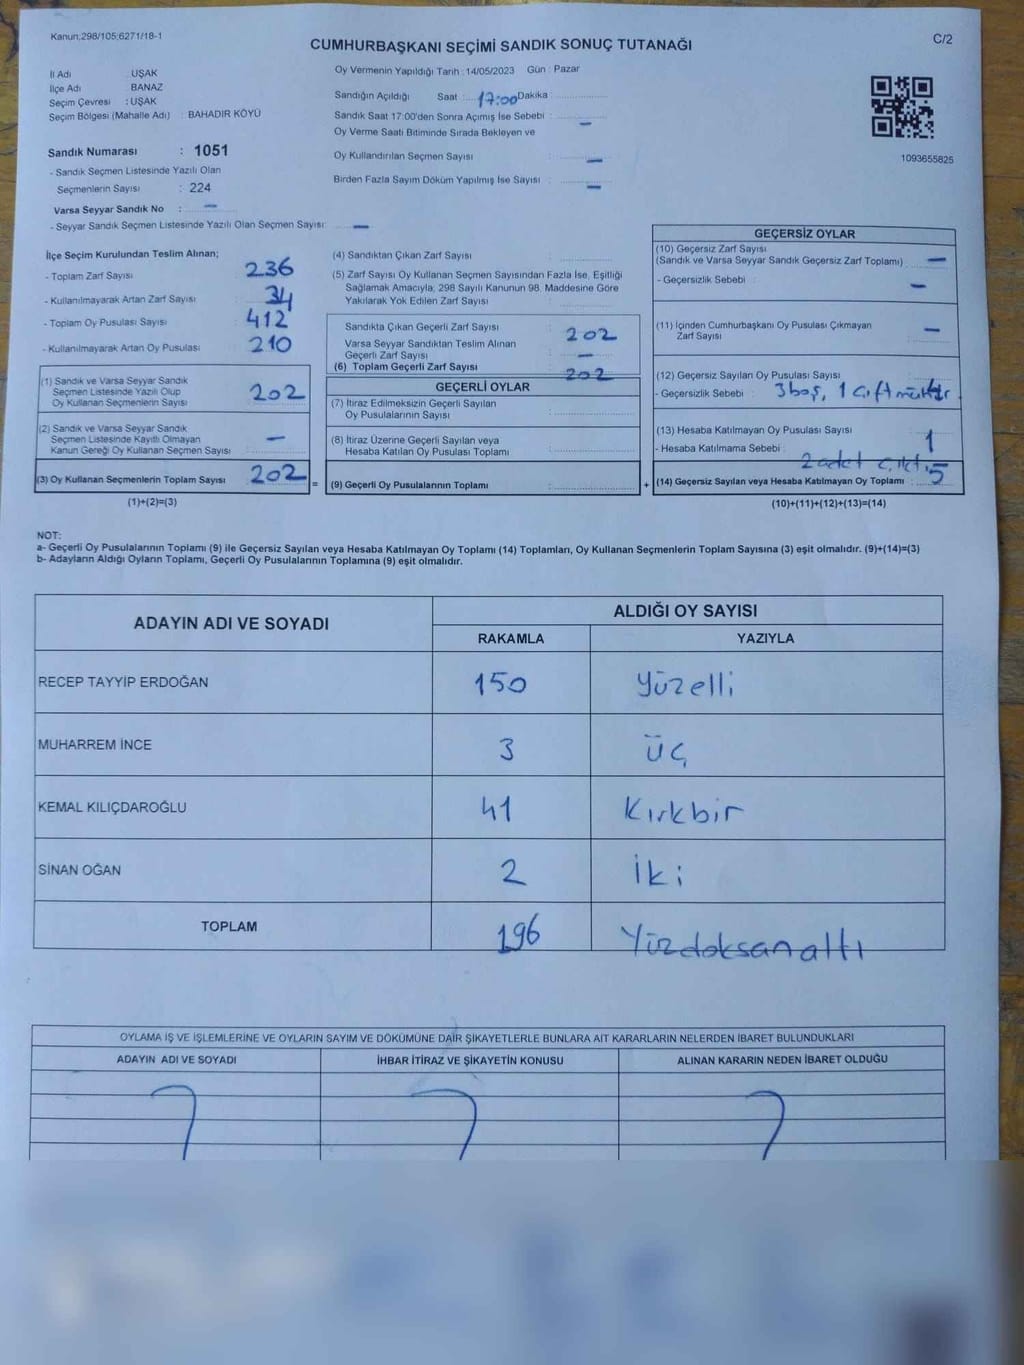 Kanun;298/105;6271/18-1
C/2
CUMHURBAŞKANI SEÇİMİ SANDIK SONUÇ TUTANAĞI
İl Adı : UŞAK
İlçe Adı : BANAZ
Seçim Çevresi : UŞAK
Seçim Bölgesi (Mahalle Adı) : BAHADIR KÖYÜ
Sandık Numarası : 1051
- Sandık Seçmen Listesinde Yazılı Olan
Seçmenlerin Sayısı : 224
Varsa Seyyar Sandık No : —
- Seyyar Sandık Seçmen Listesinde Yazılı Olan Seçmen Sayısı: —
Oy Vermenin Yapıldığı Tarih : 14/05/2023 Gün : Pazar
Sandığın Açıldığı Saat : 17:00 Dakika
Sandık Saat 17:00'den Sonra Açımış İse Sebebi : —
Oy Verme Saati Bitiminde Sırada Bekleyen ve
Oy Kullandırılan Seçmen Sayısı : —
Birden Fazla Sayım Döküm Yapılmış İse Sayısı : —
1093655825
İlçe Seçim Kurulundan Teslim Alınan;
- Toplam Zarf Sayısı : 236
- Kullanılmayarak Artan Zarf Sayısı : 34
- Toplam Oy Pusulası Sayısı : 412
- Kullanılmayarak Artan Oy Pusulası : 210
(1) Sandık ve Varsa Seyyar Sandık
Seçmen Listesinde Yazılı Olup
Oy Kullanan Seçmenlerin Sayısı : 202
(2) Sandık ve Varsa Seyyar Sandık
Seçmen Listesinde Kayıtlı Olmayan
Kanun Gereği Oy Kullanan Seçmen Sayısı : —
(3) Oy Kullanan Seçmenlerin Toplam Sayısı : 202
(1)+(2)=(3)
(4) Sandıktan Çıkan Zarf Sayısı :
(5) Zarf Sayısı Oy Kullanan Seçmen Sayısından Fazla İse, Eşitliği
Sağlamak Amacıyla; 298 Sayılı Kanunun 98. Maddesine Göre
Yakılarak Yok Edilen Zarf Sayısı :
Sandıkta Çıkan Geçerli Zarf Sayısı : 202
Varsa Seyyar Sandıktan Teslim Alınan
Geçerli Zarf Sayısı : —
(6) Toplam Geçerli Zarf Sayısı : 202
GEÇERLİ OYLAR
(7) İtiraz Edilmeksizin Geçerli Sayılan
Oy Pusulalarının Sayısı :
(8) İtiraz Üzerine Geçerli Sayılan veya
Hesaba Katılan Oy Pusulası Toplamı :
= (9) Geçerli Oy Pusulalarının Toplamı :
GEÇERSİZ OYLAR
(10) Geçersiz Zarf Sayısı
(Sandık ve Varsa Seyyar Sandık Geçersiz Zarf Toplamı) : —
- Geçersizlik Sebebi : —
(11) İçinden Cumhurbaşkanı Oy Pusulası Çıkmayan
Zarf Sayısı : —
(12) Geçersiz Sayılan Oy Pusulası Sayısı : 4
- Geçersizlik Sebebi : 3 boş, 1 çift mühür
(13) Hesaba Katılmayan Oy Pusulası Sayısı : 1
- Hesaba Katılmama Sebebi : 2 adet çıktı
+ (14) Geçersiz Sayılan veya Hesaba Katılmayan Oy Toplamı : 5
(10)+(11)+(12)+(13)=(14)
NOT:
a- Geçerli Oy Pusulalarının Toplamı (9) ile Geçersiz Sayılan veya Hesaba Katılmayan Oy Toplamı (14) Toplamları, Oy Kullanan Seçmenlerin Toplam Sayısına (3) eşit olmalıdır. (9)+(14)=(3)
b- Adayların Aldığı Oyların Toplamı, Geçerli Oy Pusulalarının Toplamına (9) eşit olmalıdır.
ADAYIN ADI VE SOYADI
ALDIĞI OY SAYISI
RAKAMLA YAZIYLA
RECEP TAYYİP ERDOĞAN 150 Yüzelli
MUHARREM İNCE 3 üç
KEMAL KILIÇDAROĞLU 41 Kırkbir
SİNAN OĞAN 2 İki
TOPLAM 196 Yüzdoksanaltı
OYLAMA İŞ VE İŞLEMLERİNE VE OYLARIN SAYIM VE DÖKÜMÜNE DAİR ŞİKAYETLERLE BUNLARA AİT KARARLARIN NELERDEN İBARET BULUNDUKLARI
ADAYIN ADI VE SOYADI İHBAR İTİRAZ VE ŞİKAYETİN KONUSU ALINAN KARARIN NEDEN İBARET OLDUĞU